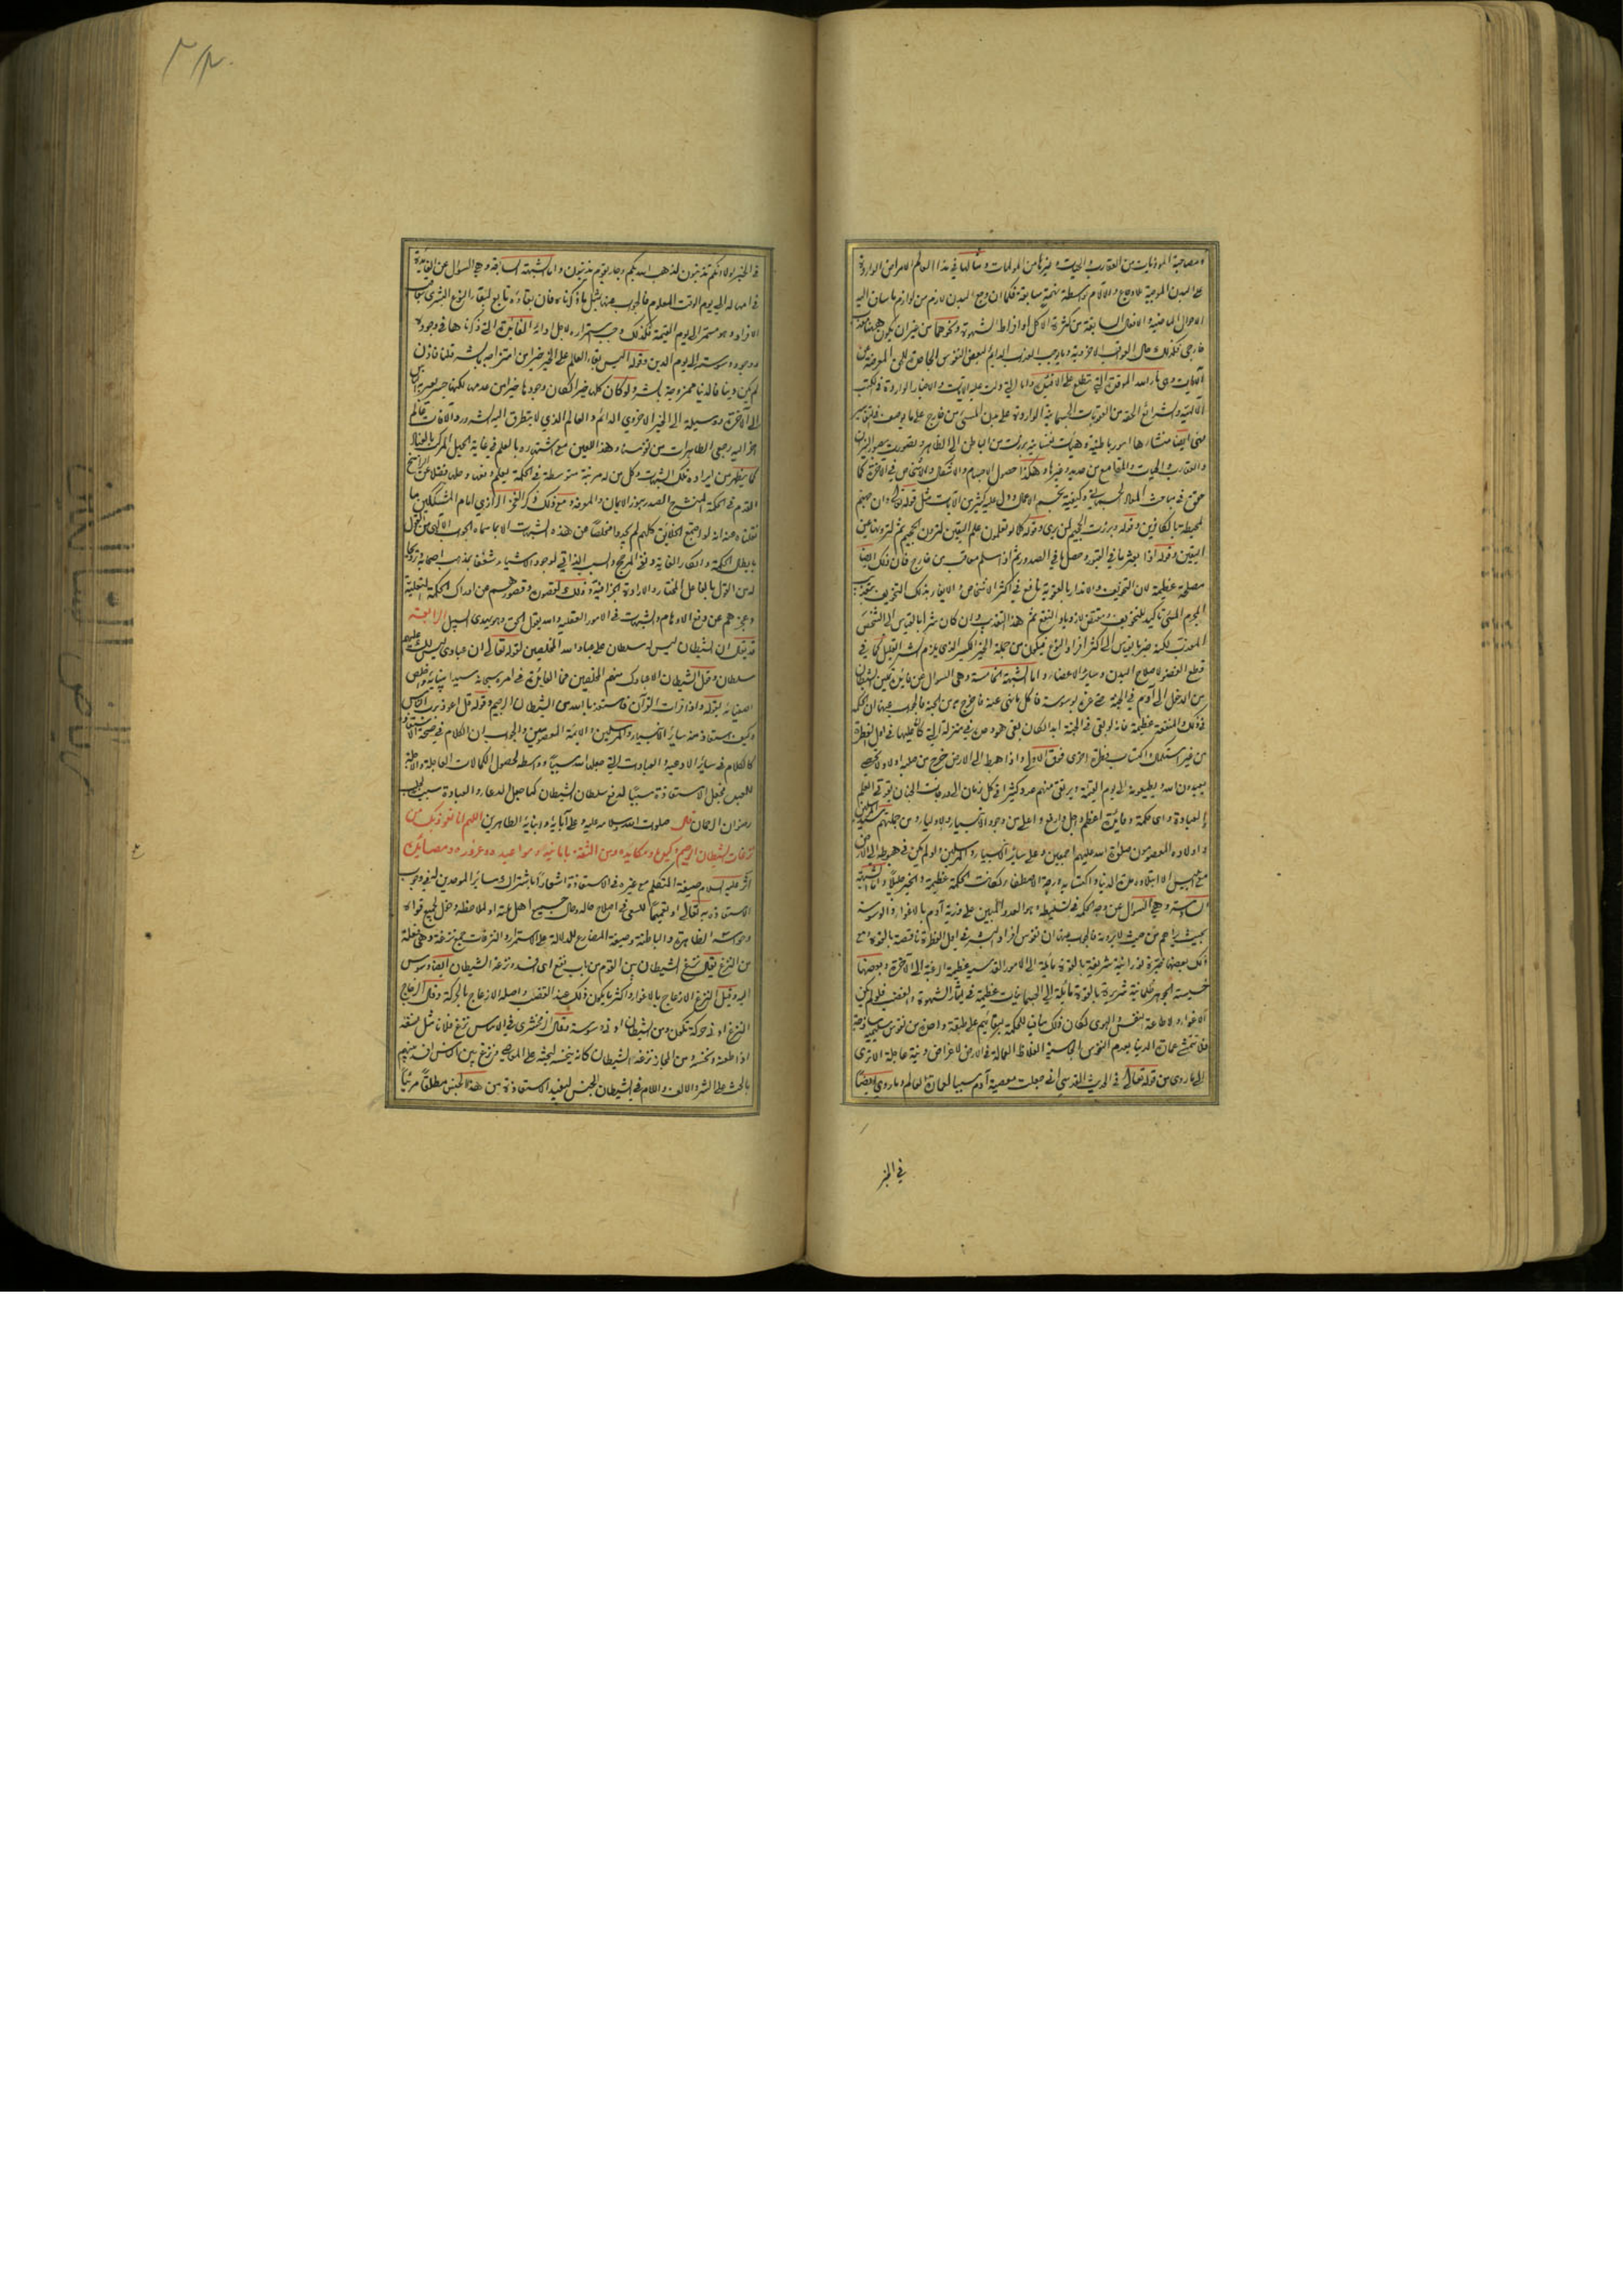 ومصاحبة الموذيات من العقارب والحيات وغيرها من المولمات وشالها في هذا العالم الامراض الواردة
على البدن الموجبة للاوجاع والآلام بواسطة نهمة سابقة فكما ان وجع البدن لازم من لوازم ما ساق اليه
الاحوال الماضية والافعال السابقة من كثرة الاكل او افراط الشهوة ونحوهما من غير ان يكون ههنا معذب
خارجي فكذلك حال العواقب الاخروية وما يوجب العذاب الدائم لبعض النفوس الجاحدة للحق المعرضة عن
الآيات وهي نار الله الموقدة التي تطلع على الافئدة واما التي دلت عليه الآيات والاخبار الواردة في الكتب
الالهية والشرائع الحقة من العقوبات الجسمانية الواردة على بدن المسيء من خارج على ما يوصف في التفاسير
فهي ايضا منشأها امور باطنية وهيئات نفسانية برزت من الباطن الى الظاهر وتصورت بصورة النيران
والعقارب والحيات والمقامع من حديد وغيرها وهكذا حصول الاجسام والاشكال والاشخاص في الآخرة كما
حقق في مباحث المعاد الجسماني وكيفية تجسم الاعمال ودل عليه كثير من الآيات مثل قوله تعالى وان جهنم
لمحيطة بالكافرين وقوله وبرزت الجحيم لمن يرى وقوله كلا لو تعلمون علم اليقين لترون الجحيم ثم لترونها عين
اليقين وقوله اذا بعثر ما في القبور وحصل ما في الصدور ثم اذا سلم معاقب من خارج فان ذلك ايضا
مصلحة عظيمة لان التخويف والانذار بالعقوبة نافع في اكثر الاشخاص والايفاء بذلك التخويف بتعذيب
المجرم المسيء تاكيد للتخويف ومقتض لازدياد النفع ثم هذا التعذيب وان كان شرا بالقياس الى الشخص
المعذب لكنه خير بالقياس الى اكثر افراد النوع فيكون من جملة الخير الكثير الذي يلزمه الشر القليل كما في
قطع العضو لاصلاح البدن وسائر الاعضاء واما الشبهة الخامسة وهي السوال عن فائدة تمكين الشيطان
من الدخول الى آدم في الجنة حتى غره بوسوسة فاكل ما نهى عنه فاخرج به من الجنة فالجواب عنها ان الحكمة
في ذلك والمنفعة عظيمة فانه لو بقي في الجنة ابدا لكان بقي هو وحده في منزلته التي كان عليها في اول الفطرة
من غير استكمال واكتساب فعلة اخرى فوق الاولى واذا هبط الى الارض خرج من صلبه اولاد لا تحصى
يعبدون الله ويطيعونه الى يوم القيمة ويرتقي منهم عدد كثير في كل زمان الى درجات الجنان بقوتي العلم
والعبادة واي حكمة وفائدة اعظم واجل وارفع واعلى من وجود الانبياء والاولياء ومن جملتهم سيد المرسلين
واولاده المعصومون صلوات الله عليهم اجمعين وعلى سائر الانبياء والمرسلين ولو لم يكن في هبوطه الى الارض
مع ابليس الا ابتلاؤه مدة الدنيا واكتسابه درجة الاصطفاء لكانت الحكمة عظيمة والخير جليلا واما الشبهة
السادسة وهي السوال عن وجه الحكمة في تسليطه وهو العدو المبين على ذرية آدم بالاغواء والوسوسة
بحيث يراهم من حيث لا يرونه فالجواب عنها ان نفوس افراد البشر في اول الفطرة ناقصة بالقوة ومع
ذلك بعضها خيرة نورانية شريفة بالقوة مائلة الى الامور القدسية عظيمة الرغبة الى الآخرة وبعضها
خسيسة الجوهر ظلمانية شريرة بالقوة مائلة الى الجسمانيات عظيمة في ايثار الشهوة والغضب فلو لم يكن
الاغواء ولا طاعة النفس والهوى لكان ذلك منافيا للحكمة لبقائهم على طبقة واحدة من نفوس سليمة ساذجة
فلا تتمشى عمارة الدنيا بعدم النفوس الجاسية الغلاظ العمالة في الارض لاغراض دنية عاجلة الا ترى
الى ما روي من قوله تعالى في الحديث القدسي اني جعلت معصية آدم سببا لعمارة العالم وما روي ايضا
في الخبر
في الخبر لولا انكم تذنبون لذهب الله بكم وجاء بقوم يذنبون واما الشبهة السابعة وهي السوال عن الفائدة
في امهاله الى يوم الوقت المعلوم فالجواب عنها بمثل ما ذكرناه فان بقاءه تابع لبقاء النوع البشري بتعاقب
الافراد وهو مستمر الى يوم القيمة فكذلك وجب استمراره لاجل ادامة الفائدة التي ذكرناها في وجوده
ووجود وسوسته الى يوم الدين وقوله اليس بقاء العالم على الخير خيرا من امتزاجه بالشر قلنا فاذن
لم يكن دنيا فالدنيا ممزوجة بالشر ولو كان كلها خيرا لكان وجودها خيرا من عدمها لكنها جسر يعبر به الناس
الى الآخرة ووسيلة الى الخير الاخروي الدائم والعالم الذي لا يتطرق اليه الشرور والآفات
كما يظهر من ايراده تلك الشبهات وكل من له مرتبة متوسطة في الحكمة يعلم دفعها وحلها فضلا عن الراسخ
القدم في الحكمة المنشرح الصدر بنور الايمان والمعرفة ومع ذلك ذكر الفخر الرازي امام المشككين ما
نقلناه عنه انه لو اجتمع الخلايق كلهم لم يجدوا مخلصا عن هذه الشبهات الا بما سماه الجواب الالهي من القول
بابطال الحكمة وانكار الغاية ونفي المرجح والسبب الذاتي لوجود الاشياء شغفا بمذهب اصحابه وترويجا
له من القول بالفاعل المختار والارادة الجزافية وذلك لقصوره وقصورهم عن ادراك الحكمة المتعالية
وعجزهم عن دفع الاوهام والشبهات في الامور العقلية والله يقول الحق وهو يهدي السبيل الرابعة
قد يقال ان الشيطان ليس له سلطان على عباد الله المخلصين لقوله تعالى ان عبادي ليس لك عليهم
سلطان وقول الشيطان الا عبادك منهم المخلصين فما الفائدة في امره سبحانه سيد انبيائه وخلص
اصفيائه بقوله واذا قرات القرآن فاستعذ بالله من الشيطان الرجيم وقوله قل اعوذ برب الناس
وكيف استعاذ منه سائر الانبياء والمرسلين والائمة المعصومين والجواب ان الكلام في صحة الاستعاذة
كالكلام في سائر الادعية والعبادات التي جعلها الله سببا وواسطة لحصول الكمالات العاجلة والآجلة
للعبد فجعل الاستعاذة سببا لدفع سلطان الشيطان كما جعل الدعاء والعبادة سببا لجلب
رضوان الرحمان قال صلوات الله وسلامه عليه وعلى آبائه وابنائه الطاهرين اللهم انا نعوذ بك من
نزغات الشيطان الرجيم وكيده ومكايده ومن الثقة بامانيه ومواعيده وغروره ومصائده
آثر عليه السلام صيغة المتكلم مع غيره في الاستعاذة اشعارا باشتراك سائر الموحدين له في وجوب
الاستعاذة به تعالى او تعميما للسعي في اصلاح حاله وحال جميع اهل ملته او لملاحظة دخل لجميع قواه
وحواسه الظاهرة والباطنة وصيغة المضارع للدلالة على الاستمرار والنزغات جمع نزغة وهي فعلة
من النزغ يقال نزغ الشيطان بين القوم من باب نفع اي افسد ونزغه الشيطان ايضا وسوس
اليه وقيل النزغ الازعاج بالاغواء واكثر ما يكون ذلك عند الغضب واصله الازعاج بالحركة وقال الزجاج
النزغ ادنى حركة تكون ومن الشيطان ادنى وسوسة وقال الزمخشري في الاساس نزغه فلان مثل نسغه
اذا طعنه ونخسه ومن المجاز نزغه الشيطان كانه ينخسه ليحثه على المعاصي ونزغ بين الناس افسد بينهم
بالحث على الشر والالف واللام في الشيطان للجنس ليفيد الاستعاذة من هذا الجنس مطلقا مرئيا